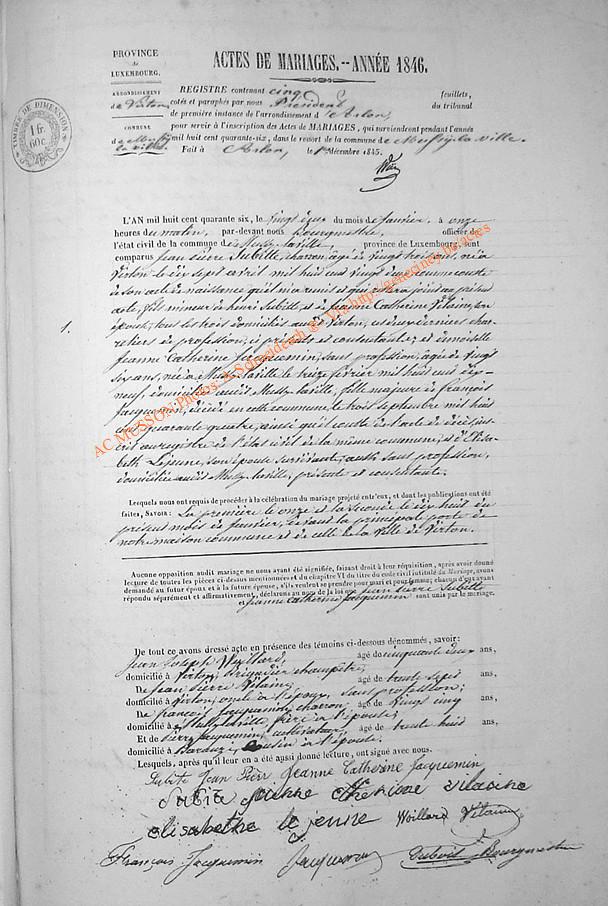 PROVINCE
de
LUXEMBOURG.
ARRONDISSEMENT
de Virton,
COMMUNE
de Mussy-
la-ville.
TIMBRE DE DIMENSION
1 fr.
60 c.
ACTES DE MARIAGES.--ANNÉE 1846.
REGISTRE contenant cinq feuillets,
cotés et paraphés par nous Président du tribunal
de première instance de l'arrondissement d'Arlon,
pour servir à l'inscription des Actes de MARIAGES, qui surviendront pendant l'année
mil huit cent quarante-six, dans le ressort de la commune de Mussy-la-ville.
Fait à Arlon, le 1er Décembre 1845.
1.
L'AN mil huit cent quarante six, le vingt deux du mois de janvier, à onze
heures du matin, par-devant nous bourgmestre, officier de
l'état civil de la commune de Mussy-laville, province de Luxembourg, sont
comparus Jean Pierre Dubitte, charron, âgé de vingt trois ans, né à
Virton le dix sept avril mil huit cent vingt deux comme conste
de son acte de naissance qu'il m'a remis et qui restera joint au présent
acte, fils mineur de henri Dubitte et de Jeanne Catherine Vilaine, son
épouse, tous les trois domiciliés audit Virton, ces deux derniers
de profession, ci présents et consentants; et demoiselle
Jeanne Catherine Jacquemin, sans profession, âgée de vingt
six ans, née à Mussy-laville le treize février mil huit cent dix
neuf, domiciliée audit Mussy-laville, fille majeure de françois
Jacquemin, décédé en cette commune, le trois septembre mil huit
cent quarante quatre, ainsi qu'il conste de l'acte de décès, ins-
crit au registre de l'état civil de la même commune, et d'Elisa-
beth Lejeune, son épouse survivante, aussi sans profession,
domiciliée audit Mussy-laville, présente et consentante.
Lesquels nous ont requis de procéder à la célébration du mariage projeté entr'eux, et dont les publications ont été
faites, SAVOIR: La première le onze et la seconde le dix huit du
présent mois de janvier, devant la principale porte de
notre maison commune et de celle de la ville de Virton.
Aucune opposition audit mariage ne nous ayant été signifiée, faisant droit à leur réquisition, après avoir donné
lecture de toutes les pièces ci-dessus mentionnées et du chapitre VI du titre du code civil intitulé du Mariage, avons
demandé au futur époux et à la future épouse, s'ils veulent se prendre pour mari et pour femme; chacun d'eux ayant
répondu séparément et affirmativement, déclarons au nom de la loi que Jean Pierre Dubitte
et Jeanne Catherine Jacquemin sont unis par le mariage.
De tout ce avons dressé acte en présence des témoins ci-dessous dénommés, savoir:
Jean Joseph Woillard, âgé de cinquante deux ans,
domicilié à Virton, brigadier champêtre,
De Jean Pierre Vilaine, âgé de trente sept ans,
domicilié à Virton, oncle de l'époux, sans profession;
De françois Jacquemin, charron, âgé de vingt cinq ans,
domicilié à Mussy-laville, frère de l'épouse;
Et de Pierre Jacquemin, cultivateur, âgé de trente huit ans,
domicilié à cousin de l'épouse.
Lesquels, après qu'il leur en a été aussi donné lecture, ont signé avec nous.
Jean Pierr Jeanne Catherine Jacquemin
vilaine
elisabethe le jeune Woillard Vilain
François Jacquemin Jacquemin Bourgmestre
AC MUSSON Photos A.Schneidesch gc Via http://geneciney.be/actes